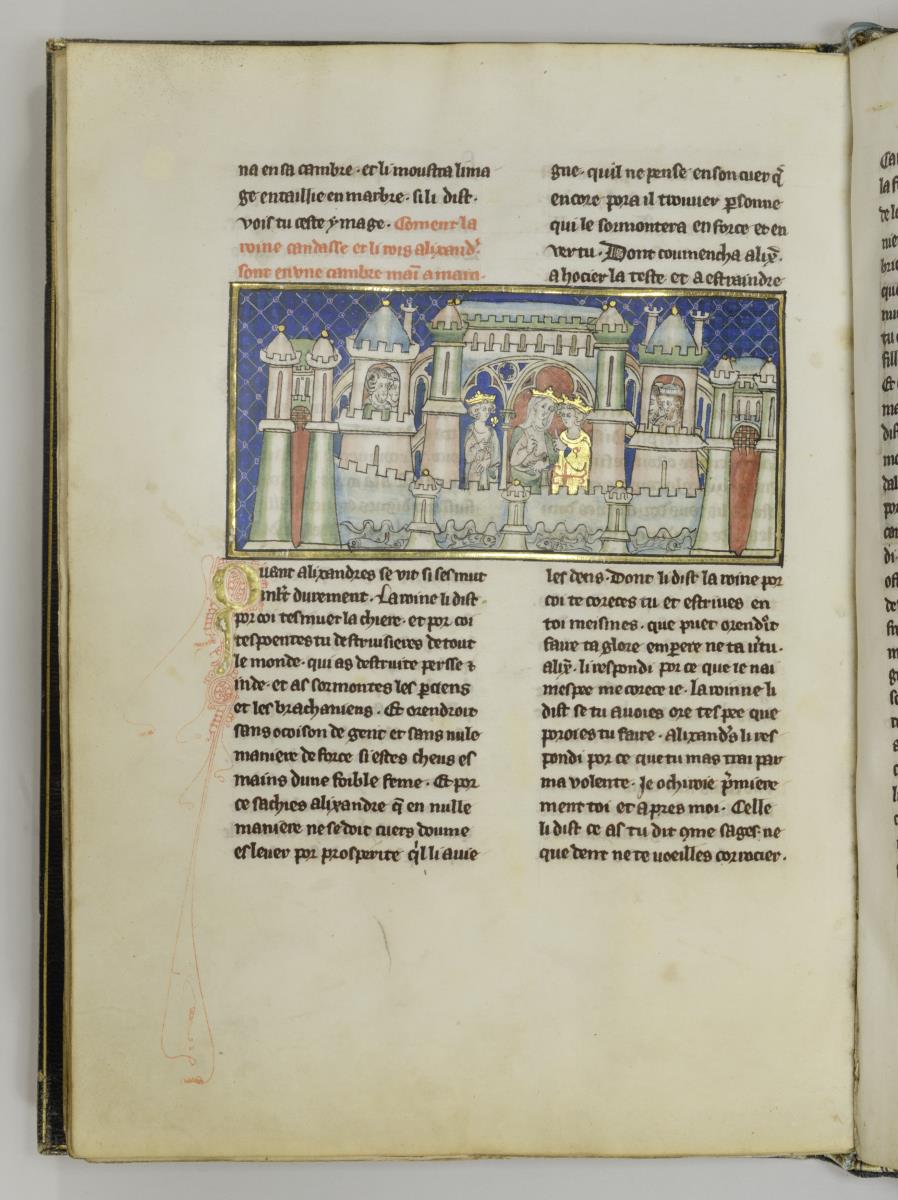 na en sa cambre · et li moustra lima
ge entaillie en marbre · si li dist ·
vois tu ceste ymage · Coment la
roine candasse et li rois alixand'.
sont en vne cambre mai᷉ a main ·
Quant alixandres se vit si ses mut
durement · La roine li dist
por coi tes muer la chiere · et por coi
tespoentes tu destruisieres de tout
le monde · qui as destruite persse ⁊
inde · et as sormontes les ꝑciens
et les brachaniens · Et orendroit
sans ocoison de gent et sans nule
maniere de force si estes cheus es
mains dune foible feme · Et por
ce sachies alixandre q̄ en nulle
maniere ne se doit cuers doume
esleuer por prosperite q'l li auie
gne · quil ne pense en son cuer q̄
encore pora il trouuer ꝑsonne
qui le sormontera en force et en
vertu · Dont coumencha alix̄ .
a hocier la teste et a estraindre
les dens · Dont li dist la roine por
coi te coreces tu et estriues en
toi meismes · que puet orend'it
faire ta glore empere ne ta u'tu ·
alix̄ · li respondi por ce que ie nai
mespee me corece ie · La roinne li
dist se tu auoies ore tespee que
poroies tu faire · Alixand's li res
pondi por ce que tu mas trai par
ma volente · Je ochiroie p'miere
ment toi et apres moi · Celle
li dist ce as tu dit 9me sages · ne
que dent ne te uoeilles corrocier .